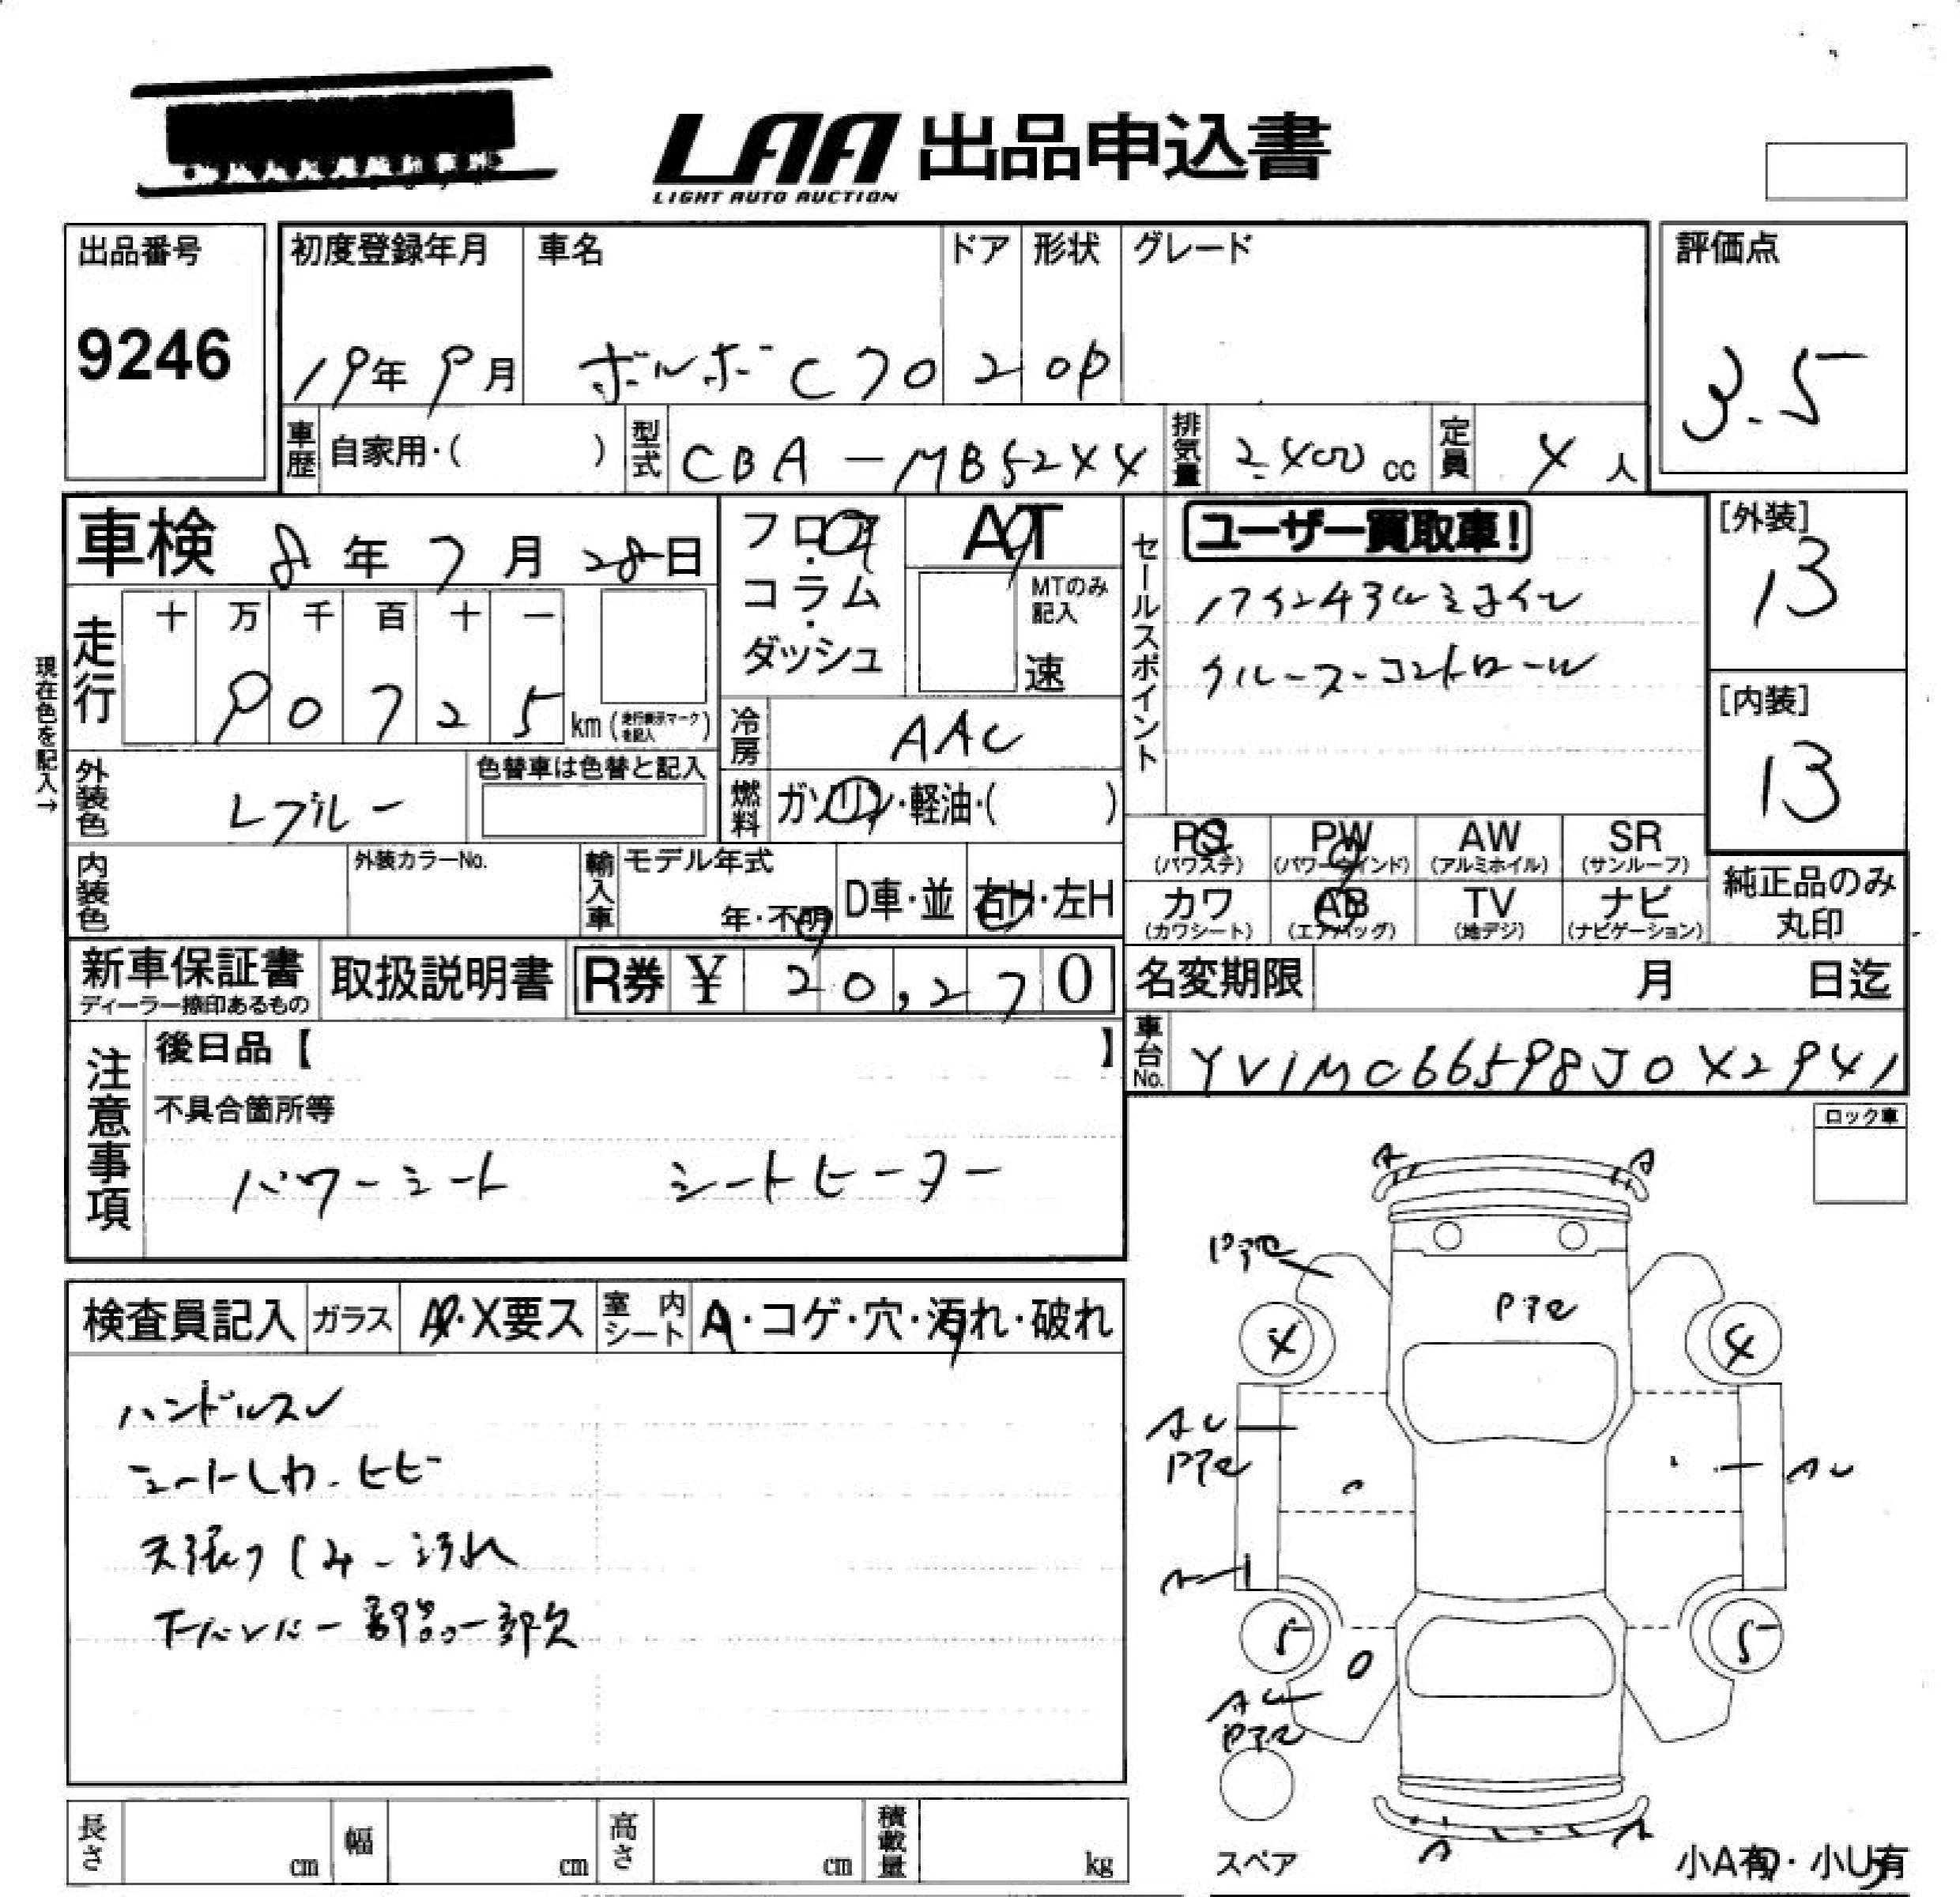 LAA 出品申込書
LIGHT AUTO AUCTION
出品番号
9246
初度登録年月
19年9月
車名
ボルボC70
ドア
2
形状
OP
グレード
評価点
3.5
車歴 自家用・( )
型式 CBA-MB5244
排気量 2.400 cc
定員 4人
車検 8年7月28日
フロア・コラム・ダッシュ
AT
MTのみ記入
速
セールスポイント
ユーザー買取車!
クルーズコントロール
[外装]
13
[内装]
13
現在色を記入→
走行
十 万 千 百 十 一
90725 km (走行表示マークを記入)
冷房 AAC
外装色 Lブルー
色替車は色替と記入
燃料 ガソリン・軽油・( )
内装色
外装カラーNo.
輸入車 モデル年式
年・不明
D車・並
右H・左H
PS (パワステ)
PW (パワーウインド)
AW (アルミホイル)
SR (サンルーフ)
カワ (カワシート)
AB (エアバッグ)
TV (地デジ)
ナビ (ナビゲーション)
純正品のみ
丸印
新車保証書
ディーラー捺印あるもの
取扱説明書
R券 ¥ 20,270
名変期限 月 日迄
車台No. YV1MC66598J042941
注意事項
後日品【 】
不具合箇所等
パワーシート シートヒーター
ロック車
検査員記入
ガラス A・X要ス
室内シート A・コゲ・穴・汚れ・破れ
ハンドルスレ
シートしわ・ヒビ
天張りしみ・汚れ
下バンパー部品一部欠
A A
Pテ
4 4
AU
AU
5 5
AU
A A
スペア
小A有・小U有
長さ cm
幅 cm
高さ cm
積載量 kg